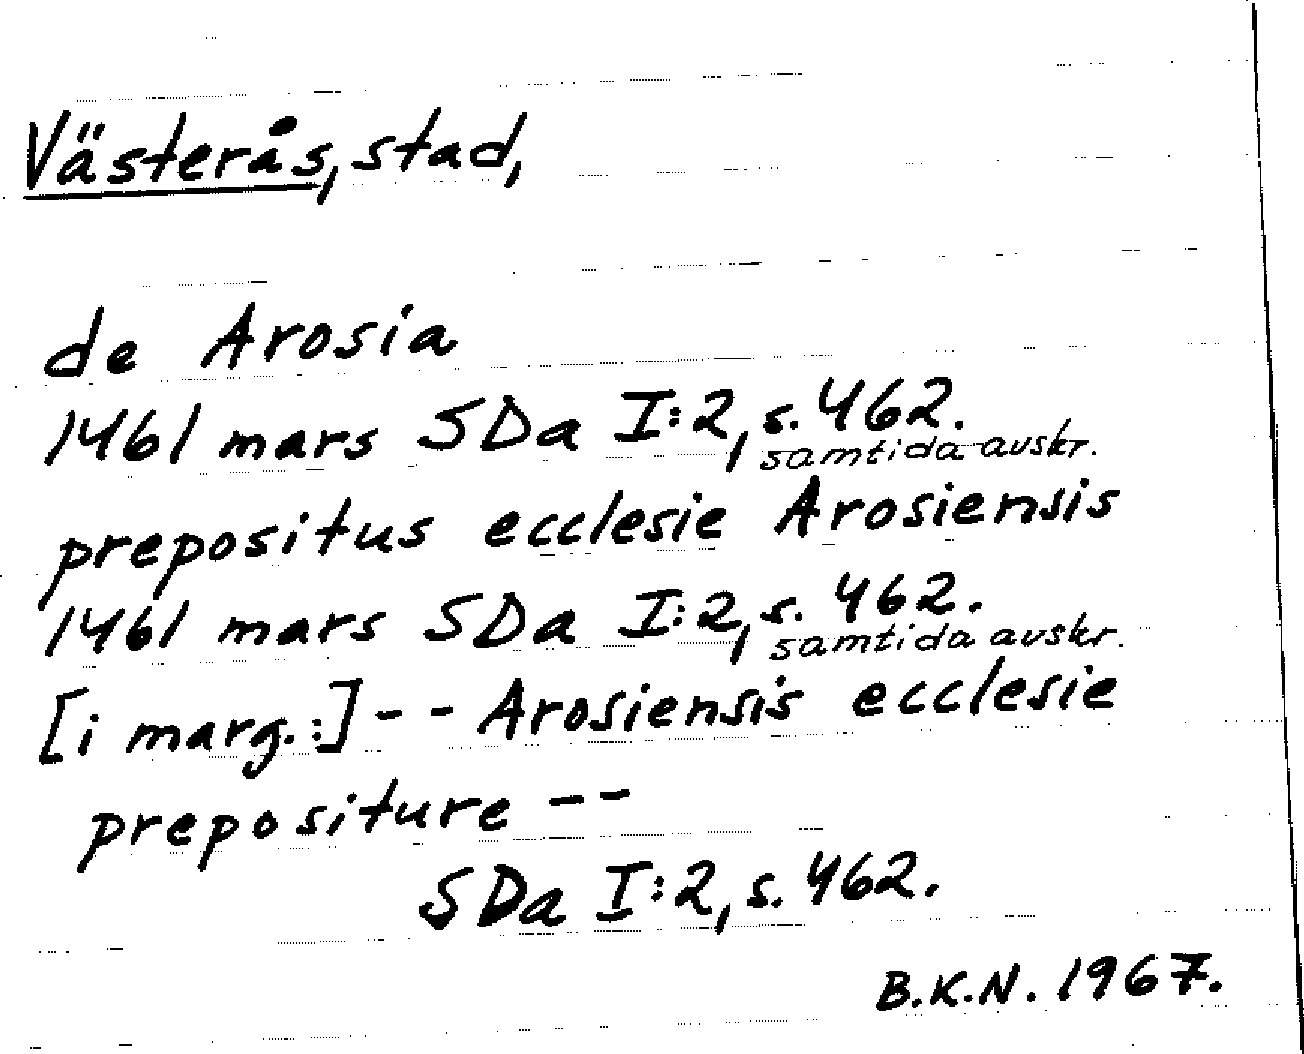 Västerås, stad,
de Arosia
1461 mars SDa I:2, s. 462.
samtida avskr.
prepositus ecclesie Arosiensis
1461 mars SDa I:2, s. 462.
samtida avskr.
[i marg.:] -- Arosiensis ecclesie
prepositure --
SDa I:2, s. 462.
B.K.N. 1967.